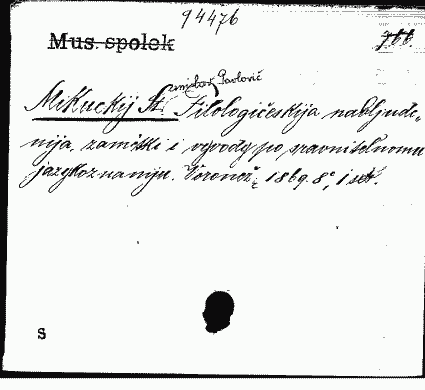 94476
Mus. spolok
Mikuckij St. Filologičeskija nabljude-
nija, zamětki i vyvody po sravnitelnomu
jazykoznaniju. Voronež, 1869. 8°,
S